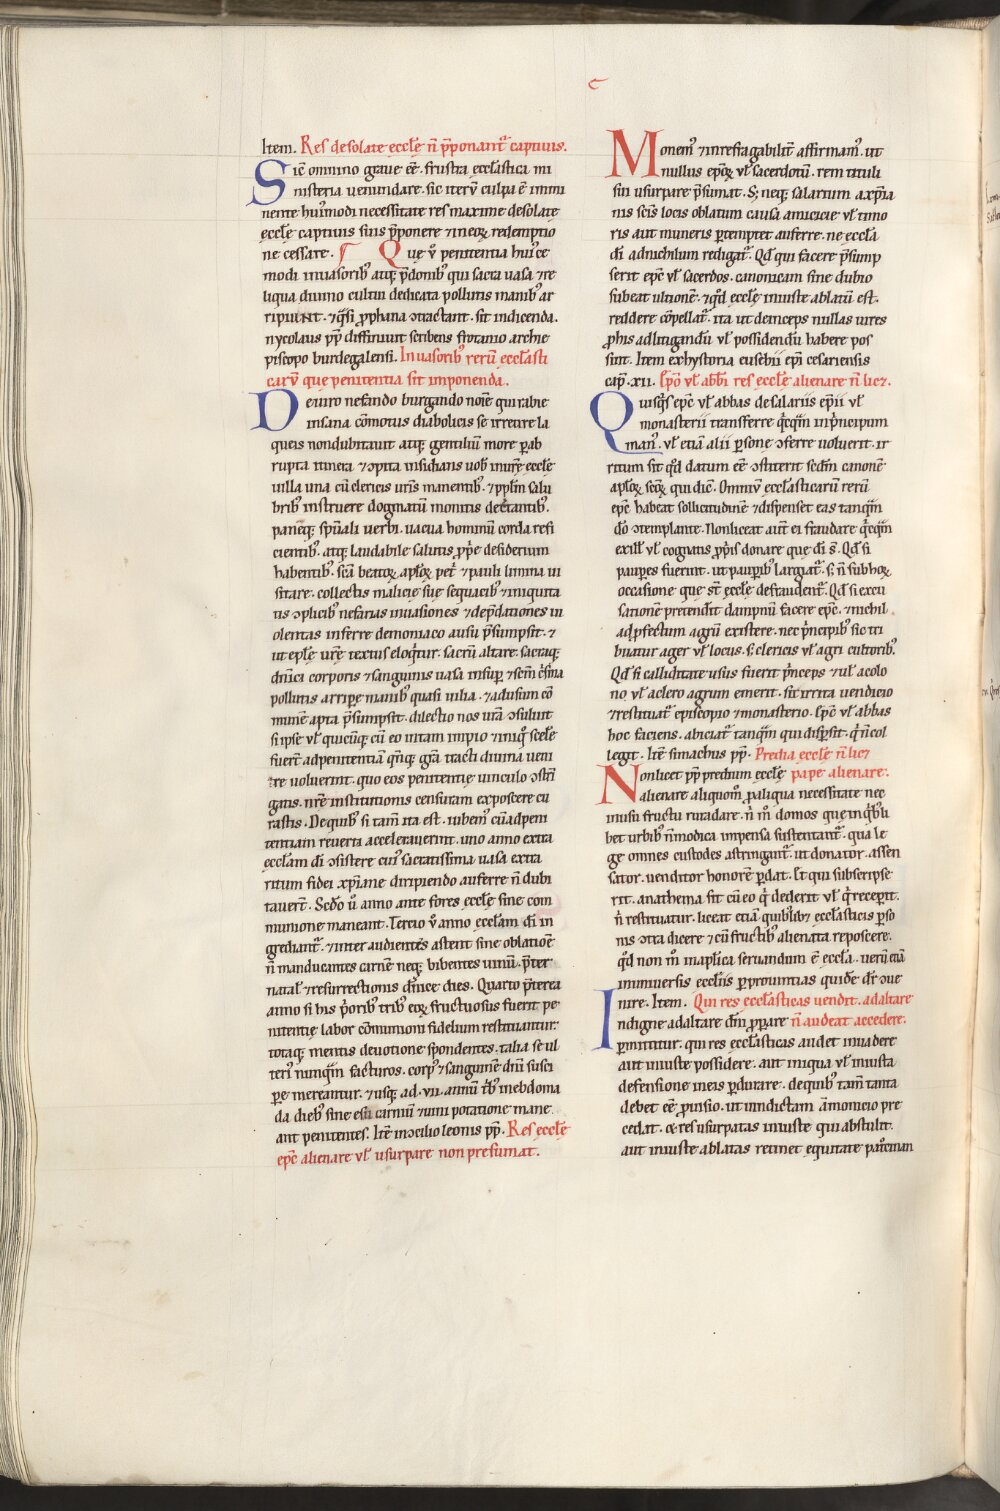 c
Item. Res desolate eccłe n̄ p̄ponant᷑ captiuis.
Sic̄ omnino graue eē. frustra eccłastica mi
nisteria uenundare. sic iterū culpa ē immi
nente huiꝰmodi necessitate res maxime desolate
eccłe captiuis suis p̄ponere ⁊ in eoꝝ redemptio
ne cessare. ¶ Que v̄ penitentia huiꝰce
modi inuasoribꝰ atqꝫ p̄donibꝰ qui sacra uasa ⁊ re
liqua diuino cultui dedicata pollutis manibꝰ ar
ripiunt. ⁊ q̄si ꝓphana ꝯtractant. sit indicenda.
nycolaus pp̄ diffiniuit scribens frotario archie
piscopo burdegalensi. Inuasoribꝰ rerū eccłasti
carū que penitentia sit imponenda.
De uiro nefando burgando noīe qui rabie
insana cōmotus diabolicis se irretire la
queis non dubitauit atqꝫ gentiliū more p̱ab
rupta itinera ⁊ ꝯpita insidians uob̄ iniur̄e eccłe
uilla una cū clericis ur̄is manentibꝰ. ⁊ pp̄lm salu
bribꝰ instruere dogmatū monitis decētantibꝰ.
paneqꝫ sp̄uali uerbi. uacua hominū corda refi
cientibꝰ. atqꝫ laudabile salutis ꝓp̄e desiderium
habentibꝰ. sc̄a beatoꝝ apl̄oꝝ petͥ ⁊ pauli limina ui
sitare. collectis malicie sue sequacibꝰ ⁊ iniquita
tis ꝯplicibꝰ nefarias inuasiones ⁊ dep̄dationes ui
olentas inferre demoniaco ausu p̄sumpsit. ⁊
ut epłe ur̄e textus eloq̄tur. sacrū altare. sacraqꝫ
dn̄ici corporis ⁊ sanguinis uasa insup̱ ⁊ sc̄m c̄sma
pollutis arripe manibꝰ quasi uilia. ⁊ ad usum cō
munē apta p̄sumpsit. dilectio nos ur̄a ꝯsuluit
si ipse vł quicūqꝫ cū eo uitam impio ⁊ iniqͦ scełe
fuer̄t ad penitentiā qn̄qꝫ gr̄a tracti diuina ueni
re uoluerint. quo eos penitentię uinculo ꝯstri
gatis. nr̄e institutionis censuram exposcere cu
rastis. De quibꝰ si tam̄ ita est. iubemꝰ cū ad peni
tentiam reuerti accelerauerint. uno anno extra
eccłam dī ꝯsistere cuiꝰ sacratissima uasa extra
ritum fidei xp̄iane diripiendo auferre n̄ dubi
tauer̄t. Scd̄o ū anno ante fores eccłe sine com
munione maneant. Tercio v̄ anno eccłam dī in
grediant᷑. ⁊ inter audientes astent sine oblatiōe
n̄ manducantes carnē neqꝫ bibentes uinū. p̄ter
natał ⁊ resurrectionis dn̄ice dies. Quarto p̄terea
anno si his p̄oribꝰ tribꝰ eoꝝ fructuosus fuerit pe
nitentię labor cōmunioni fidelium restituantur.
totaqꝫ mentis deuotione spondentes. talia se ul
teriꝰ nunq̄m facturos. corpꝰ ⁊ sanguinē dn̄i susci
pe mereantur. ⁊ usqꝫ ad .vii. annū tͥbꝰ in ebdoma
da diebꝰ sine esu carniū ⁊ uini potatione mane
ant penitentes. Itē in ꝯcilio leonis pp̄. Res eccłe
epc̄ alienare vł usurpare non presumat.
Monemꝰ ⁊ inrefragabilit̄ affirmamꝰ. ut
nullus epōꝝ vł sacerdotū. rem tituli
sui usurpare p̄sumat. Sꝫ neqꝫ salarium a xp̄ia
nis scīs locis oblatum causa amicicie vł timo
ris aut muneris p̱temptet auferre. ne eccła
dī adnichilum redigat᷑. Qd̄ qui facere p̄sump
serit epc̄ vł sacerdos. canonicam sine dubio
subeat ultionē. ⁊ qͦd eccłe iniuste ablatū est.
reddere cōpellat᷑. ita ut deinceps nullas uires
ꝓhis ad litigandū vł possidendū habere pos
sint. Item ex hystoria eusebii ep̄i cesariensis
cap̄. xii. Ep̄o vł abbi res eccłe alienare n̄ licꝫ.
Quisq̄s epc̄ vł abbas de salariis epīi vł
monasterii transferre q̄cq̄m in p̄ncipum
manꝰ. vł etiā alii p̱sone ꝯferre uoluerit. ir
ritum sit qͦd datum eē ꝯstiterit sedm̄ canonē
apl̄oꝝ sc̄oꝝ qui dic̄. Omniū eccłasticarū rerū
epc̄ habeat sollicitudinē ⁊ dispenset eas tanq̄m
dō ꝯtemplante. Non liceat aut̄ ei fraudare q̄cq̄m
ex ill̄ vł cognatis ꝓp̄is donare que dī s̄. Qd̄ si
paup̱es fuerint. ut paup̱ibꝰ largiat᷑. sꝫ n̄ sub hoꝝ
occasione que st̄ eccłe defraudent᷑. Qd̄ si excu
sationē pretendit dampnū facere epc̄. ⁊ nichil
ad ꝓfectum agrū existere. nec p̄ncipibꝰ sic tri
buatur ager vł locus. sꝫ clericis vł agri cultoribꝰ.
Qd̄ si calliditate usus fuerit p̄nceps ⁊ vł a colo
no vł a clero agrum emerit. sit irrita uendicio
⁊ restituat᷑ episcopio ⁊ monasterio. Epc̄ vł abbas
hoc faciens. abiciat᷑ tanq̄m qui disp̱sit. q̄ n̄ col
legit. Itē simachus pp̄. Predia eccłe n̄ licꝫ
Non licet pp̄ predium eccłe pape alienare.
alienare aliquomͦ ꝓ aliqua necessitate nec
in usu fructu rura dare. n̄ mͦ domos que in q̄bꝰli
bet urbibꝰ n̄ modica impensa sustentant᷑. qua le
ge omnes custodes astringunt᷑. ut donator. assen
sator. uenditor honorē p̱dat. Et qui subscripse
rit. anathema sit cū eo q̄ dederit vł q̄ recep̱it.
n̄ restituatur. liceat etiā quibꝰlibꝫ eccłasticis p̱so
nis ꝯtra dicere ⁊ cū fructibꝰ alienata reposcere.
qͦd non mͦ in ap̄lica seruandum ē eccła. uerū etiā
in uniuersis eccłiis p̱ prouintias quide dr̄ ꝯue
nire. Item. Qui res eccłasticas uendit. ad altare
Indigne ad altare dn̄i ꝓp̱are n̄ audeat accedere.
p̱mittitur. qui res eccłasticas audet inuadere
aut iniuste possidere. aut iniqua vł iniusta
defensione in eis p̱durare. de quibꝰ tam̄ tanta
debet eē ꝓuisio. ut uindictam āmonicio pre
cedat. ⁊ res usurpatas iniuste qui abstulit.
aut iniuste ablatas retinet equitate pat᷑eman